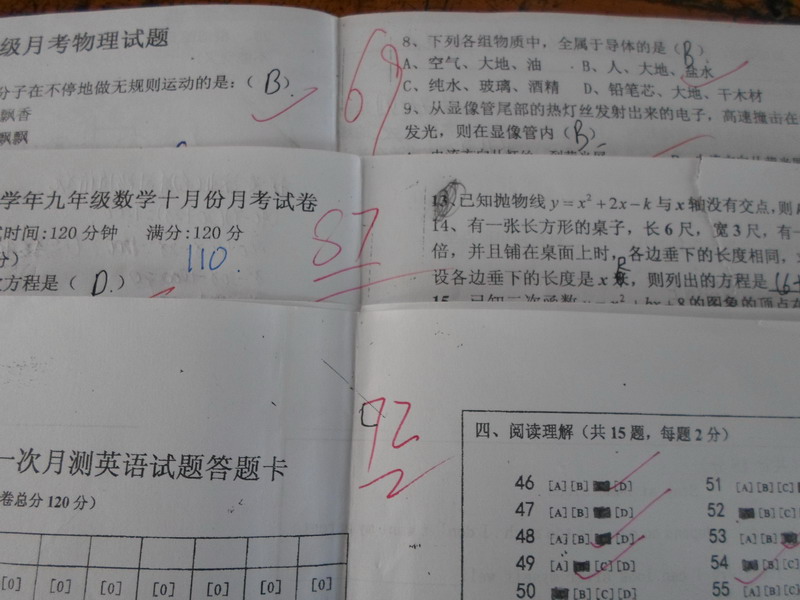 级月考物理试题
分子在不停地做无规则运动的是:( B )
飘香
飘飘
69
8、下列各组物质中，全属于导体的是( B )
A、空气、大地、油 B、人、大地、盐水
C、纯水、玻璃、酒精 D、铅笔芯、大地、干木材
9、从显像管尾部的热灯丝发射出来的电子，高速撞击在
发光，则在显像管内( B )
学年九年级数学十月份月考试卷
时间:120分钟 满分:120分
分)
110.
方程是( D. )
87
13、已知抛物线 y = x² + 2x - k 与 x 轴没有交点,则
14、有一张长方形的桌子，长6尺，宽3尺，有一
倍，并且铺在桌面上时，各边垂下的长度相同，
设各边垂下的长度是 x 尺，则列出的方程是 (6+
15、已知二次函数
92
一次月测英语试题答题卡
卷总分120分)
[0] [0] [0] [0] [0] [0] [0]
四、阅读理解(共15题，每题2分)
46 [A] [B] [D] 51 [A] [B] [C]
47 [A] [B] [D] 52 [B] [C]
48 [A] [B] [D] 53 [A] [B]
49 [A] [C] [D] 54 [B] [C]
50 [B] [C] [D] 55 [A] [B] [C]